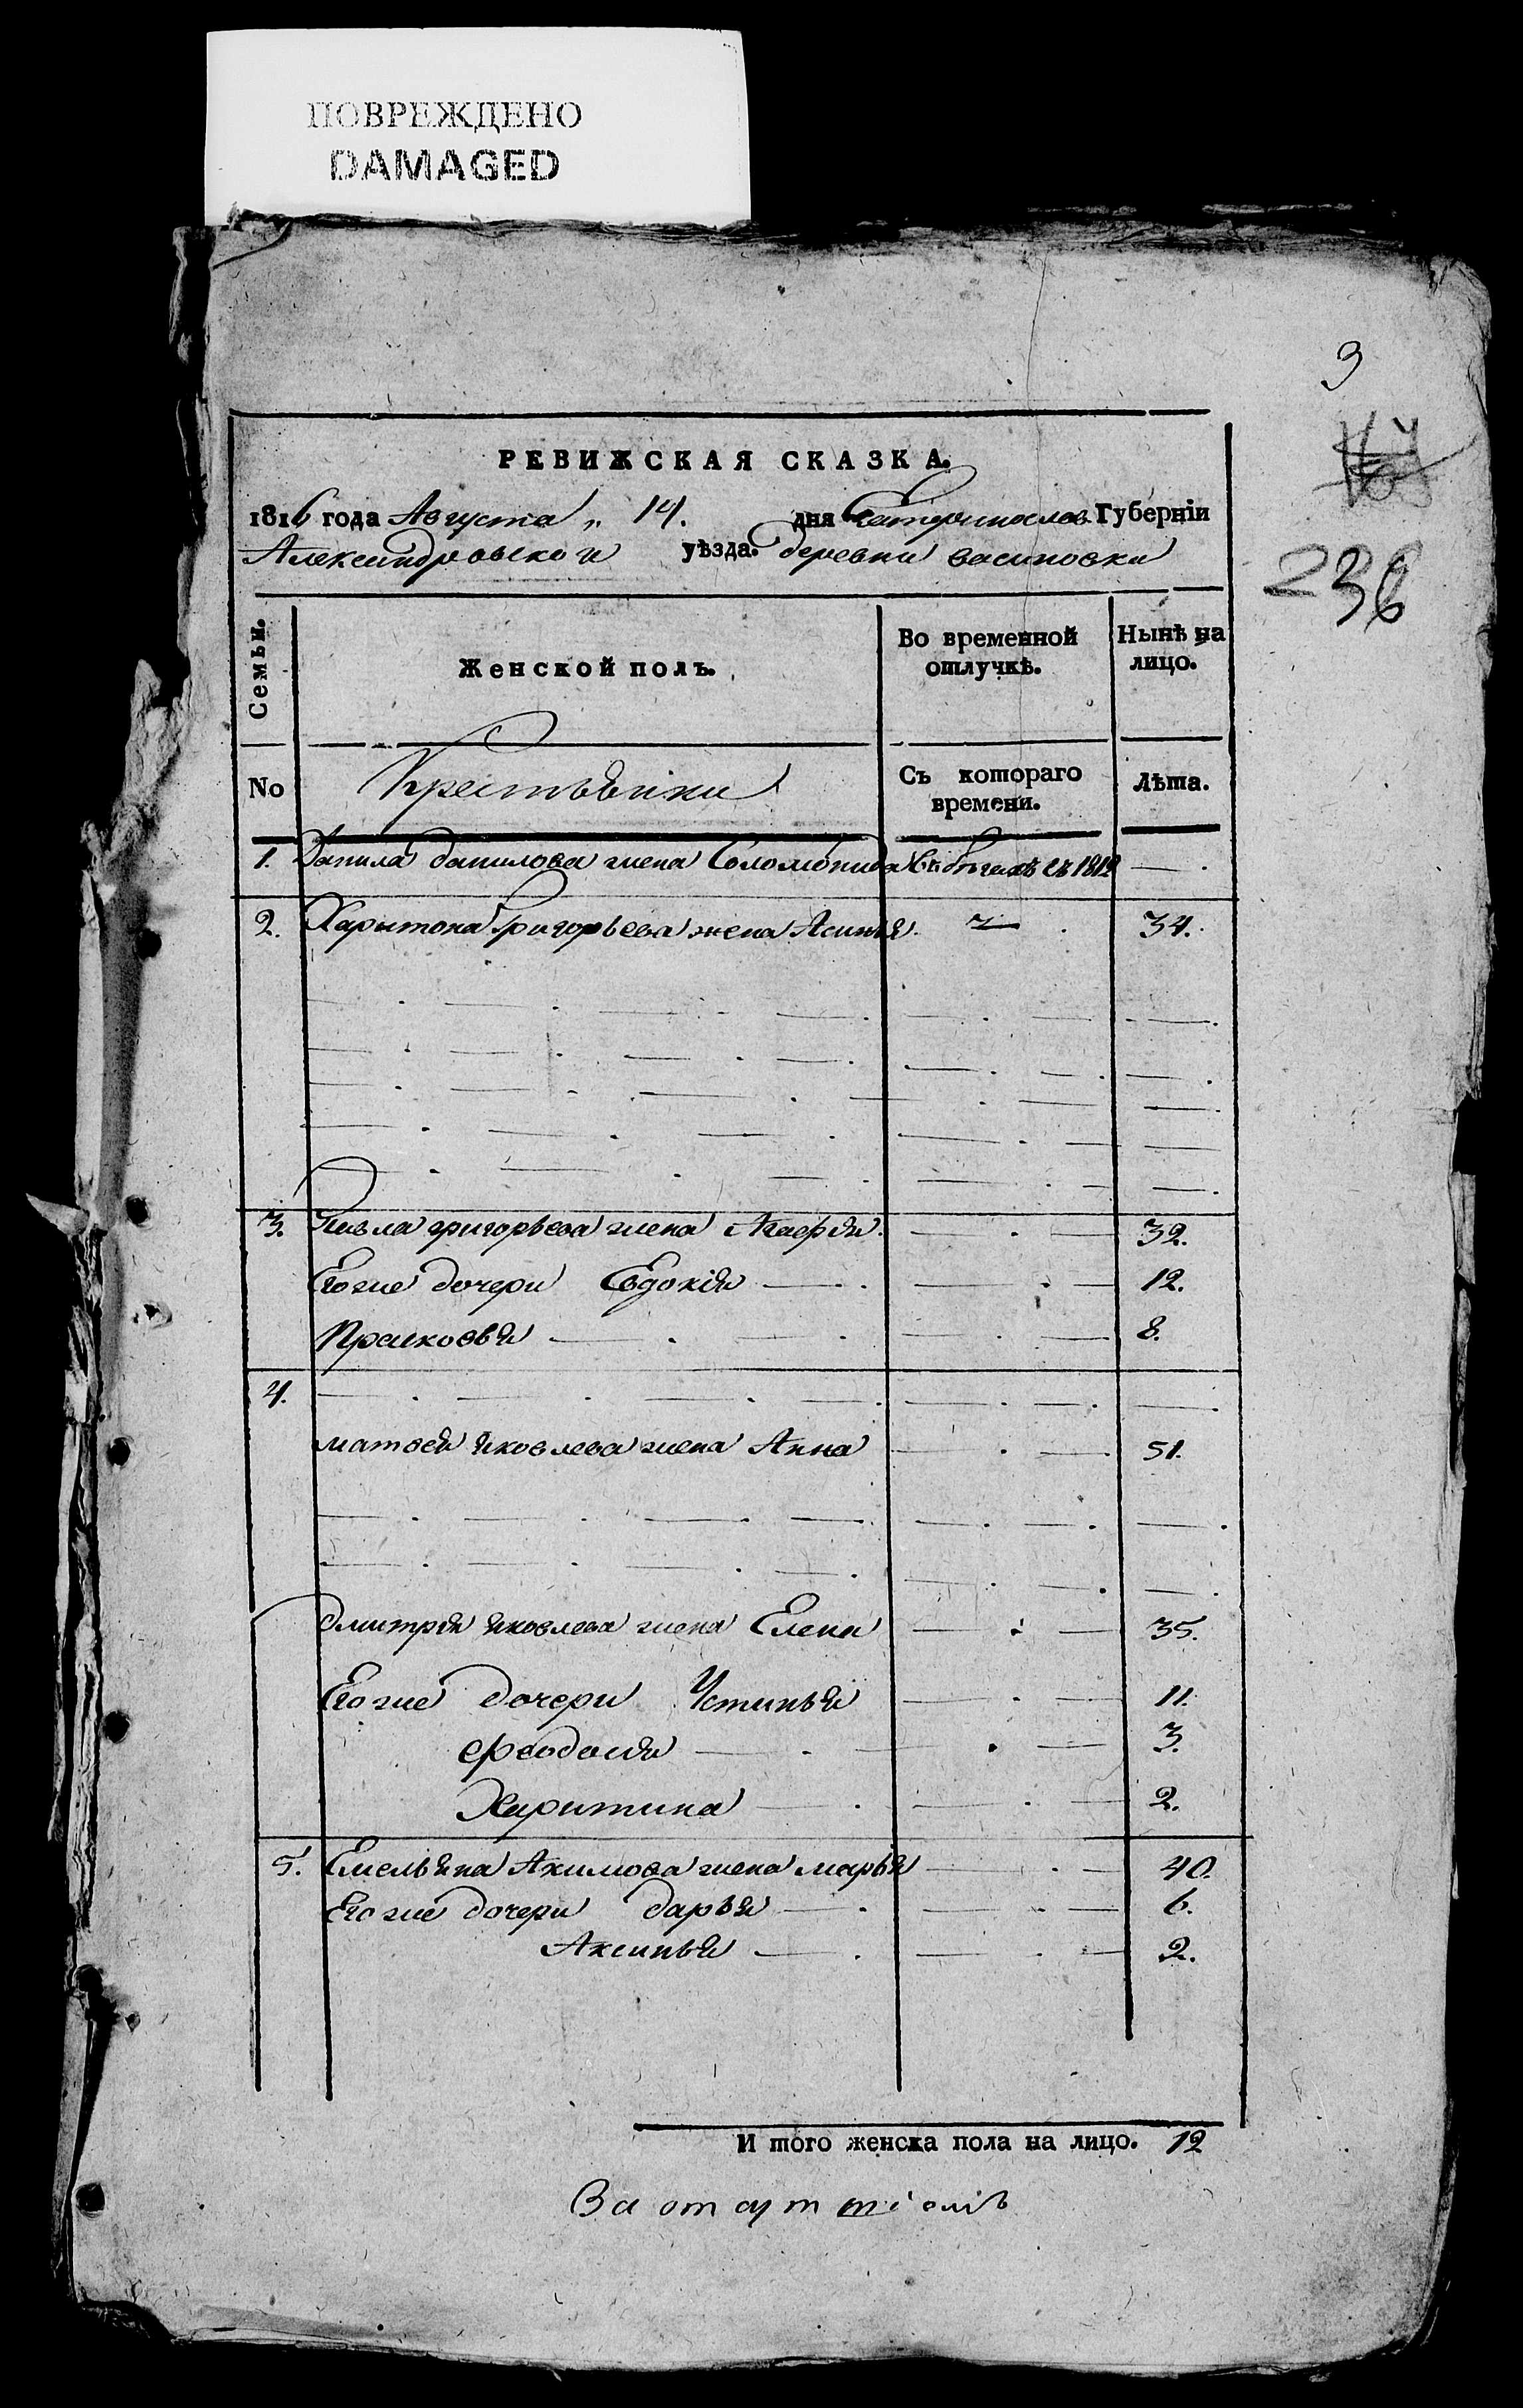 ПОВРЕЖДЕНО
DAMAGED
3
РЕВИЖСКАЯ СКАЗКА.
1816 года Августа „ 14. дня Екатеринослов. Губерніи
Александровской уѣзда. деревни васиновки
236
Семьи.
Женской полъ.
Во временной отлучкѣ.
Нынѣ на лицо.
No
Крестьянки
Съ котораго времени.
Лѣта.
1. Данила данилова жена Соломонида въ бѣгахъ съ 1812 — .
2. Харитона Григорьева жена Аксинья. — . 34.
3. Павла григорьева жена Агафия. — . — 32.
Егоже дочери Евдокия — . — . — 12.
Прасковья — . — . — 8.
4.
матвея яковлева жена Анна — . — 51.
дмитрия яковлева жена Елена — . — 35.
Егоже дочери Устинья — . — 11.
феодосия — . — . — 3.
Харитина — . — . — 2.
5. Емельяна Акимова жена марья — . — 40.
Егоже дочери дарья — . — . — 6.
Аксинья — . — . — 2.
И того женска пола на лицо. 12
За отсутствіемъ